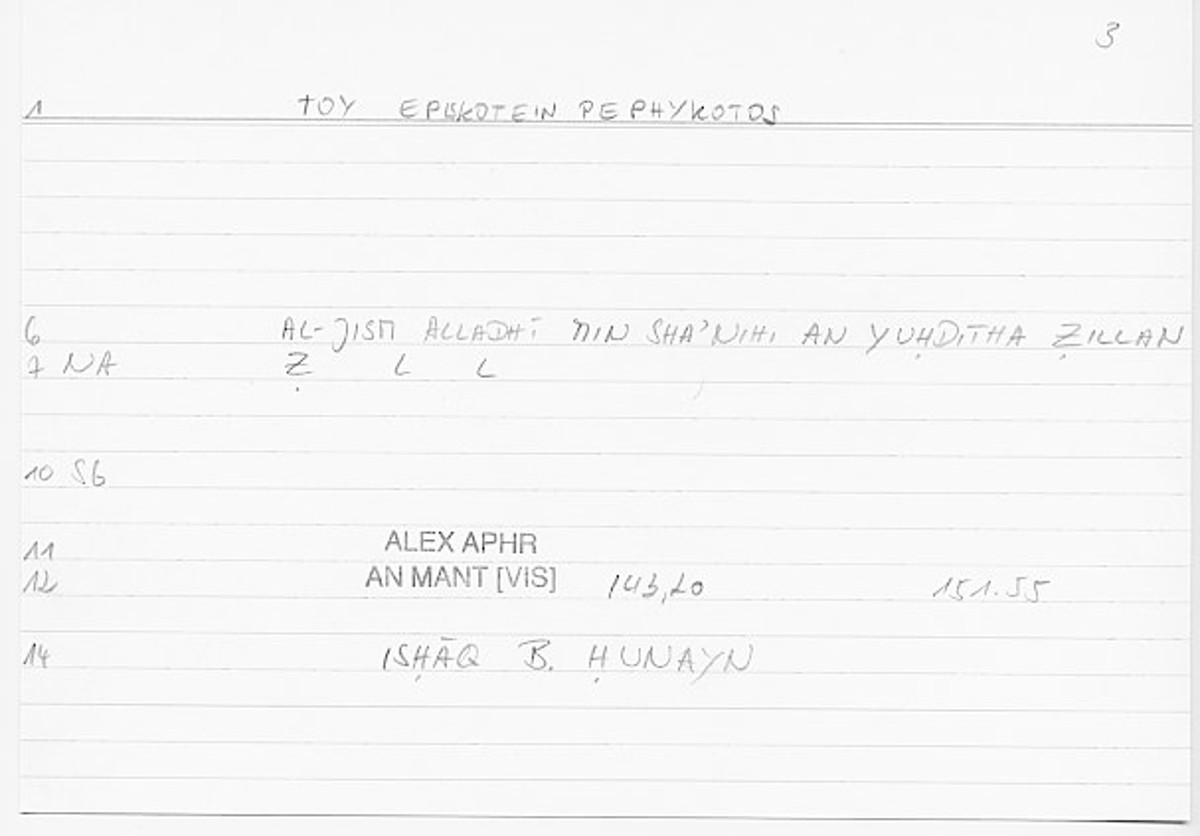 3
1 TOY EPISKOTEIN PEPHYKOTOS
6 AL-JISM ALLADHĪ MIN SHA’NIHI AN YUḤDITHA ẒILLAN
7 NA Ẓ L L
10 SG
11 ALEX APHR
12 AN MANT [VIS] 143,20 151.55
14 ISḤĀQ B. ḤUNAYN